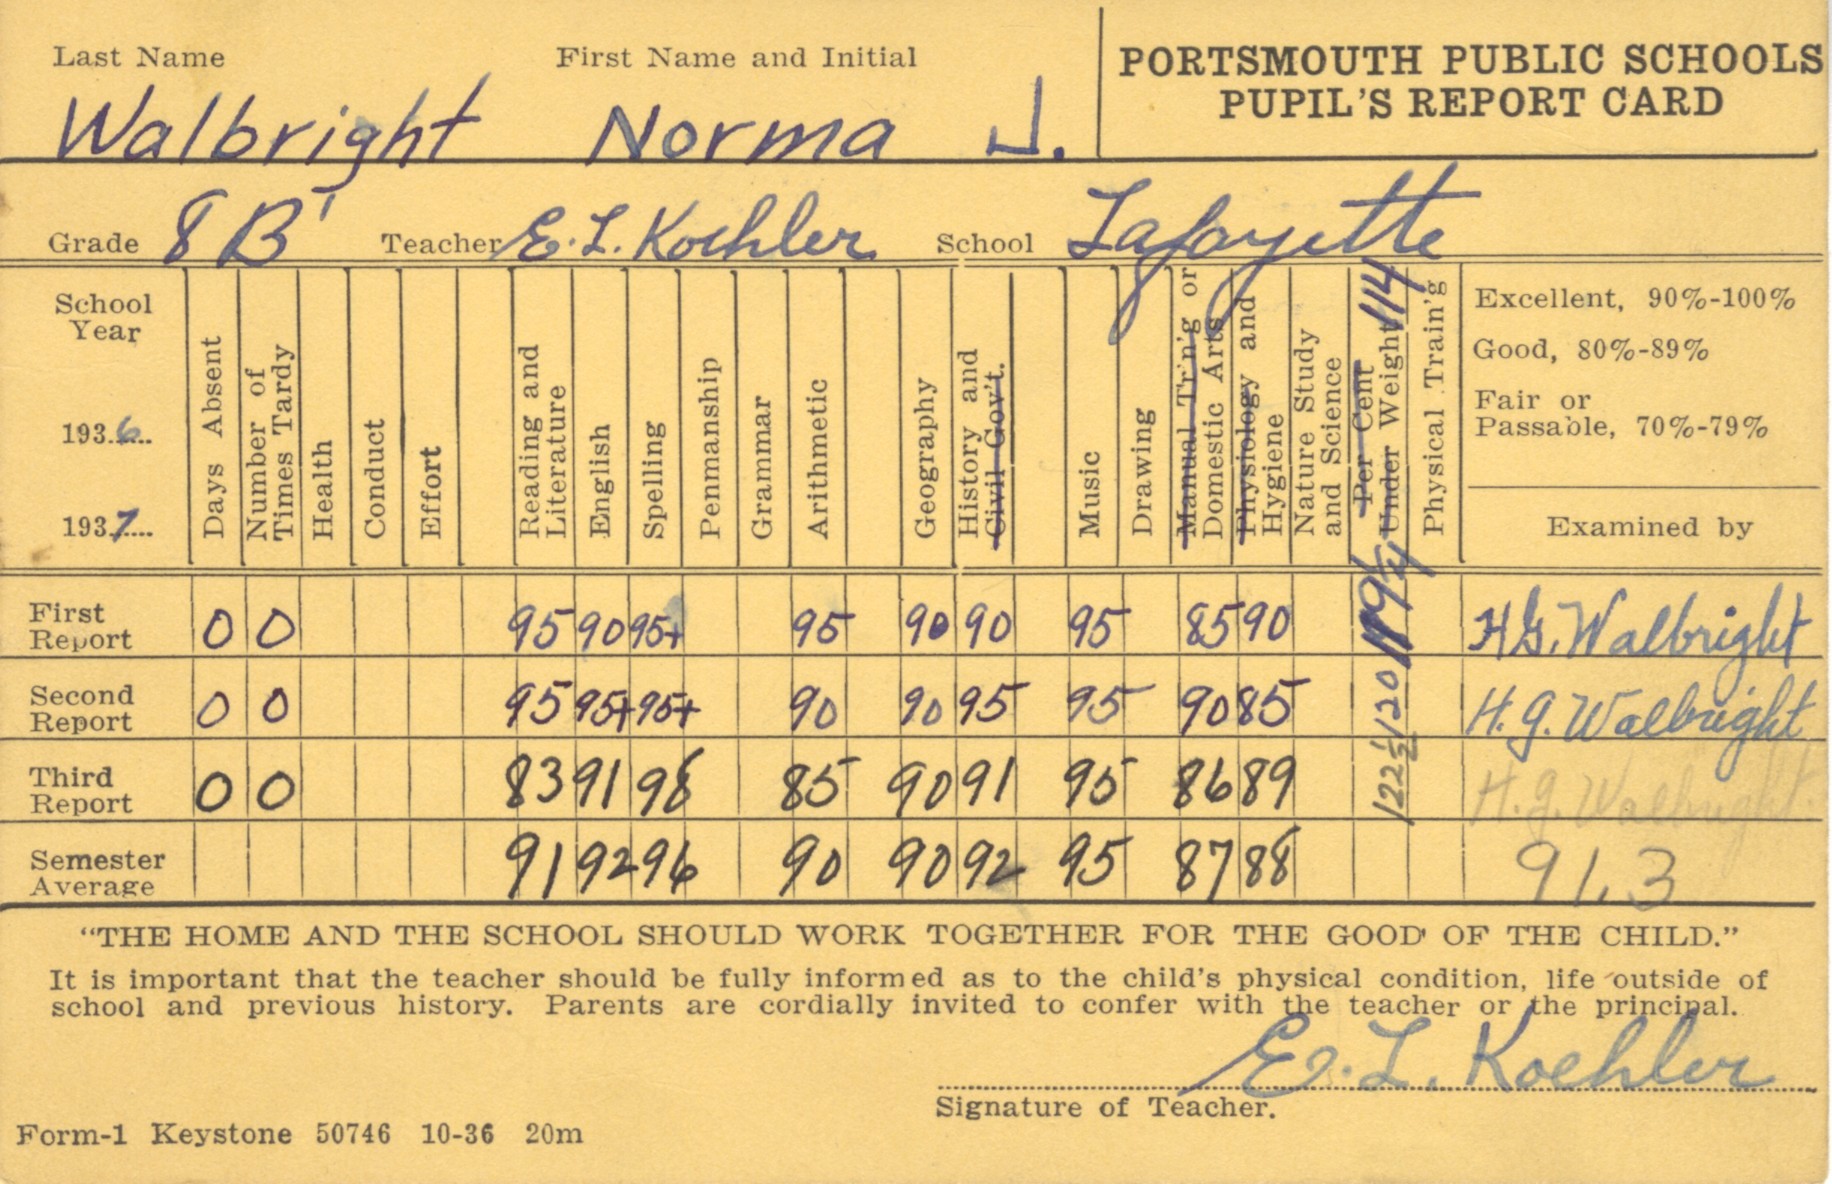 Last Name First Name and Initial PORTSMOUTH PUBLIC SCHOOLS
PUPIL'S REPORT CARD
Walbright Norma J.
Grade 8 B¹ Teacher E. L. Koehler School Lafayette
School Year
1936
1937
Days Absent
Number of
Times Tardy
Health
Conduct
Effort
Reading and
Literature
English
Spelling
Penmanship
Grammar
Arithmetic
Geography
History and
Civil Gov't.
Music
Drawing
Manual Tr'n'g or
Domestic Arts
Physiology and
Hygiene
Nature Study
and Science
Per Cent
Under Weight 114
Physical Train'g
Excellent, 90%-100%
Good, 80%-89%
Fair or
Passable, 70%-79%
Examined by
119 1/4
First Report 0 0 95 90 95+ 95 90 90 95 85 90 H.G. Walbright
Second Report 0 0 95 95+ 95+ 90 90 95 95 90 85 120 H. G. Walbright
Third Report 0 0 83 91 98 85 90 91 95 86 89 122 1/2 H. G. Walbright
Semester Average 91 92 96 90 90 92 95 87 88 91.3
"THE HOME AND THE SCHOOL SHOULD WORK TOGETHER FOR THE GOOD OF THE CHILD."
It is important that the teacher should be fully informed as to the child's physical condition, life outside of
school and previous history. Parents are cordially invited to confer with the teacher or the principal.
E. L. Koehler
Signature of Teacher.
Form-1 Keystone 50746 10-36 20m